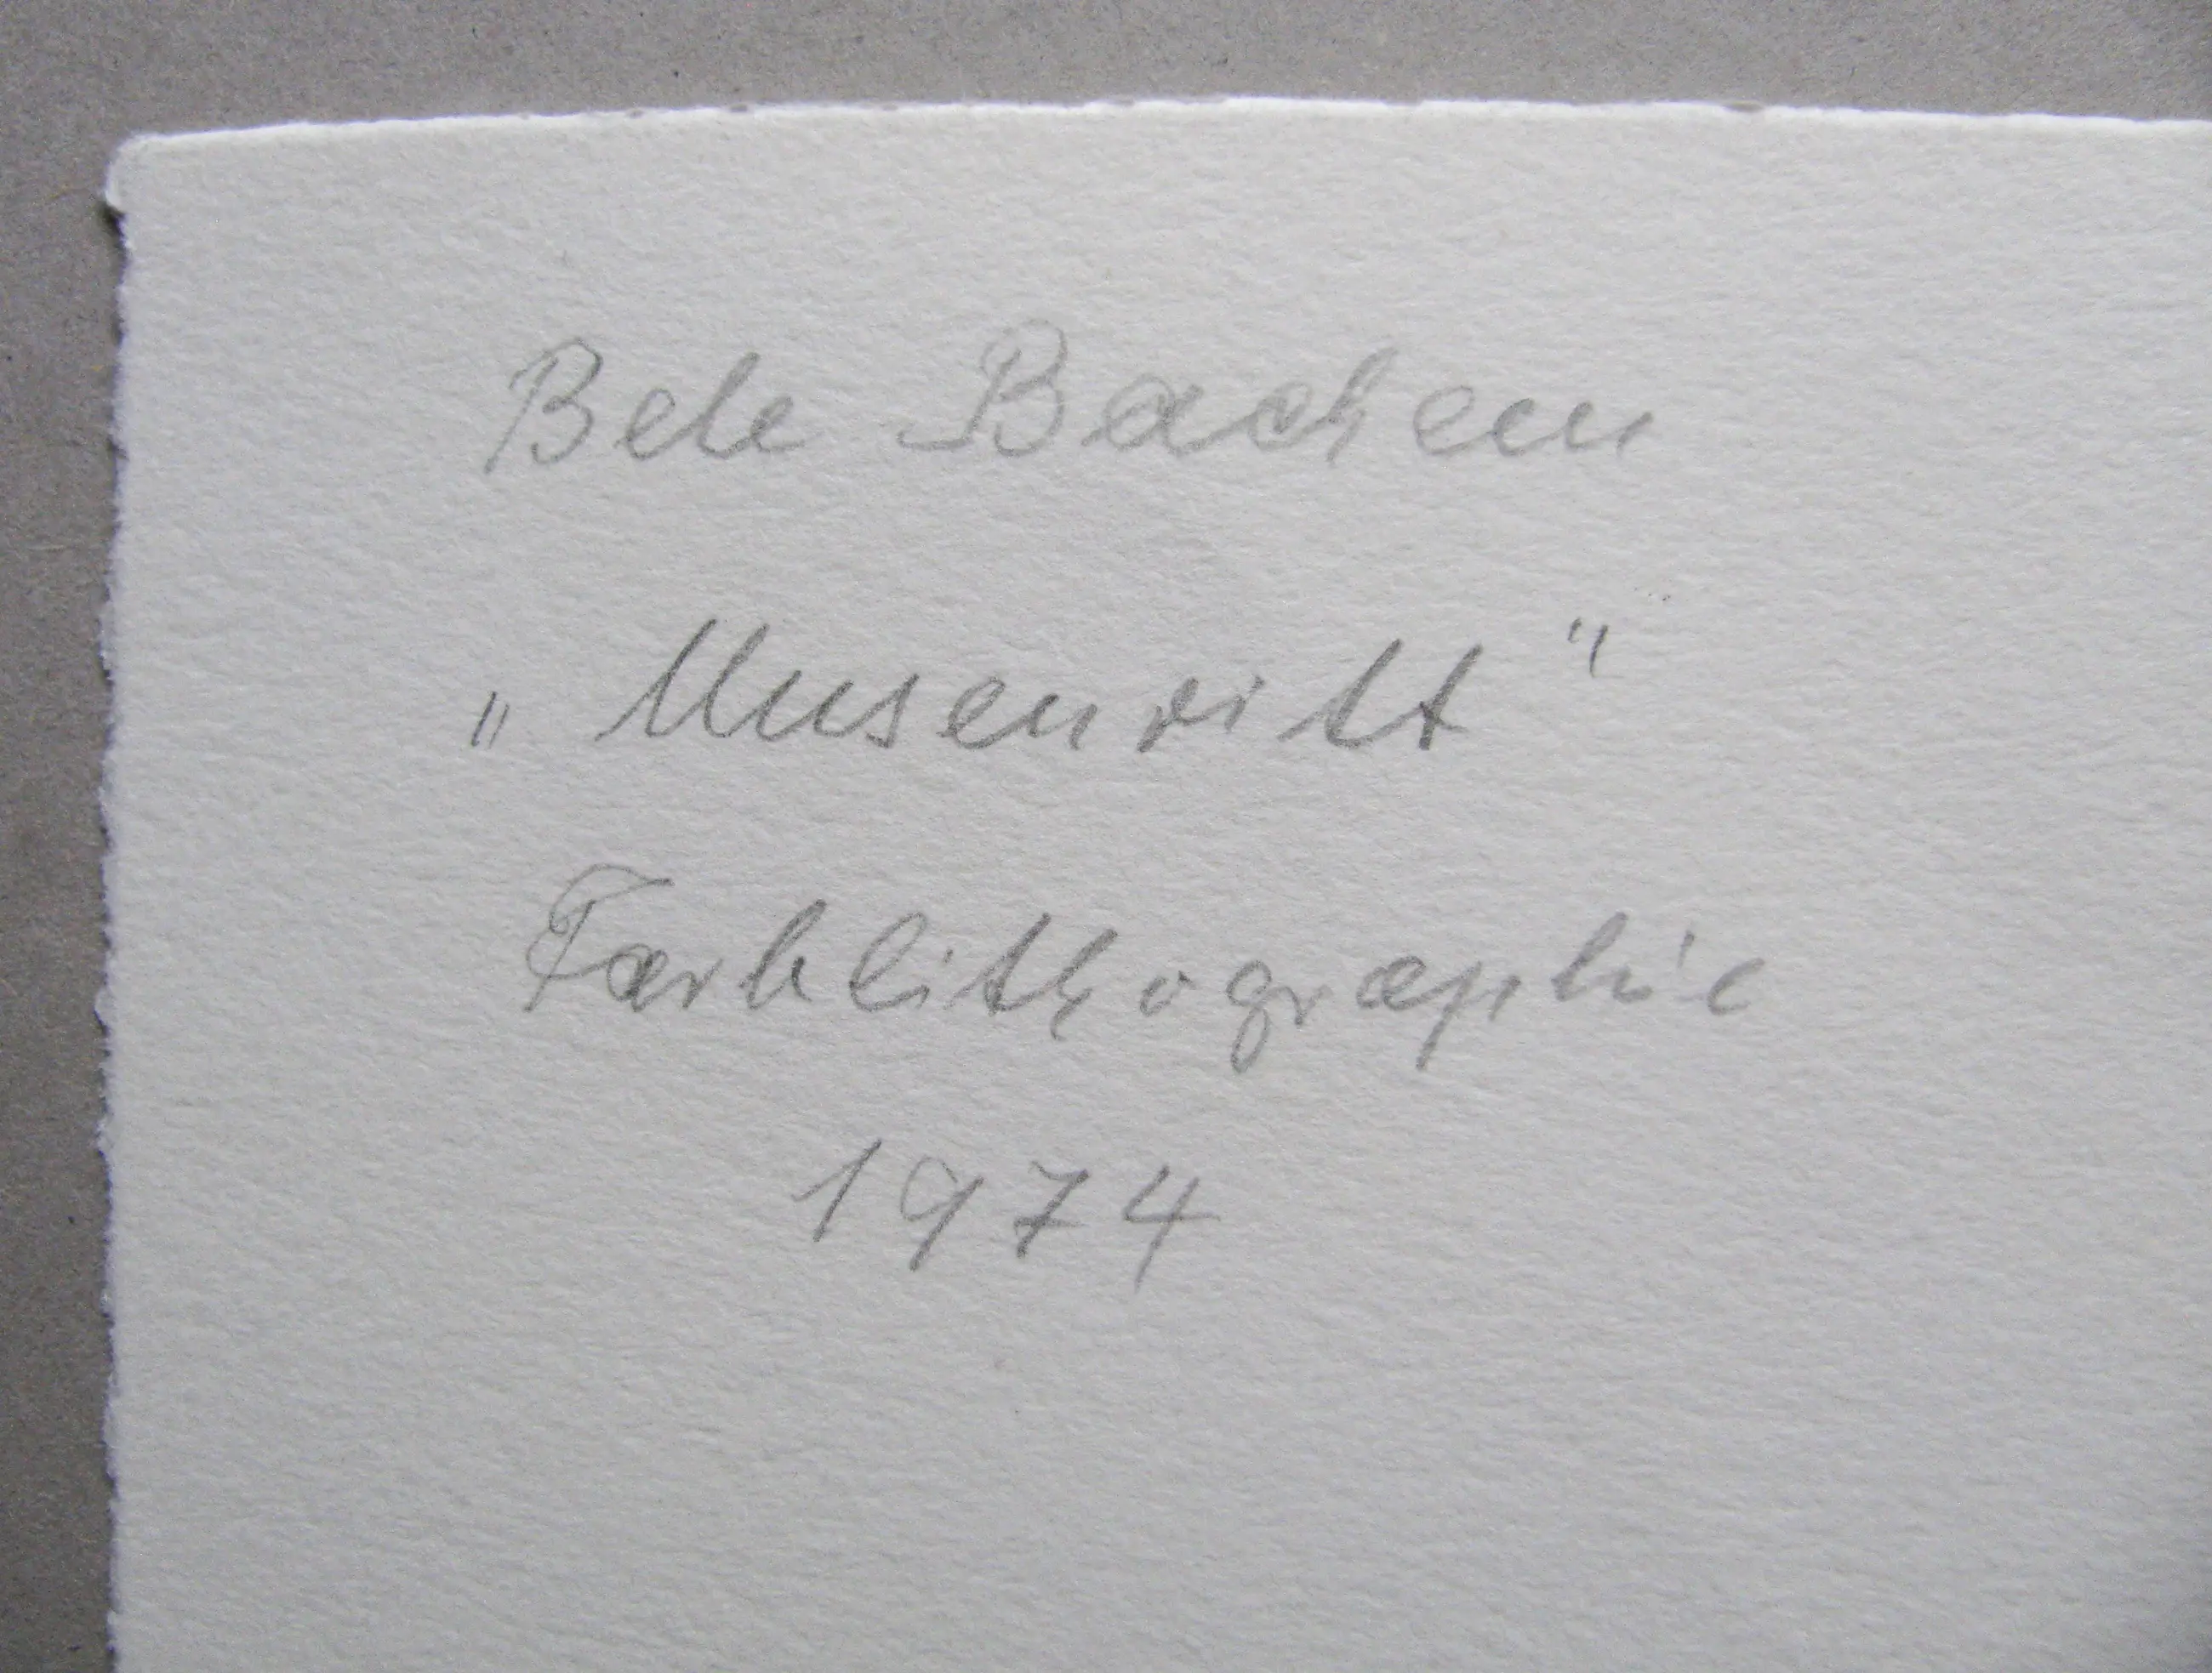 Bele Bachem
„Musenritt“
Farblithographie
1974